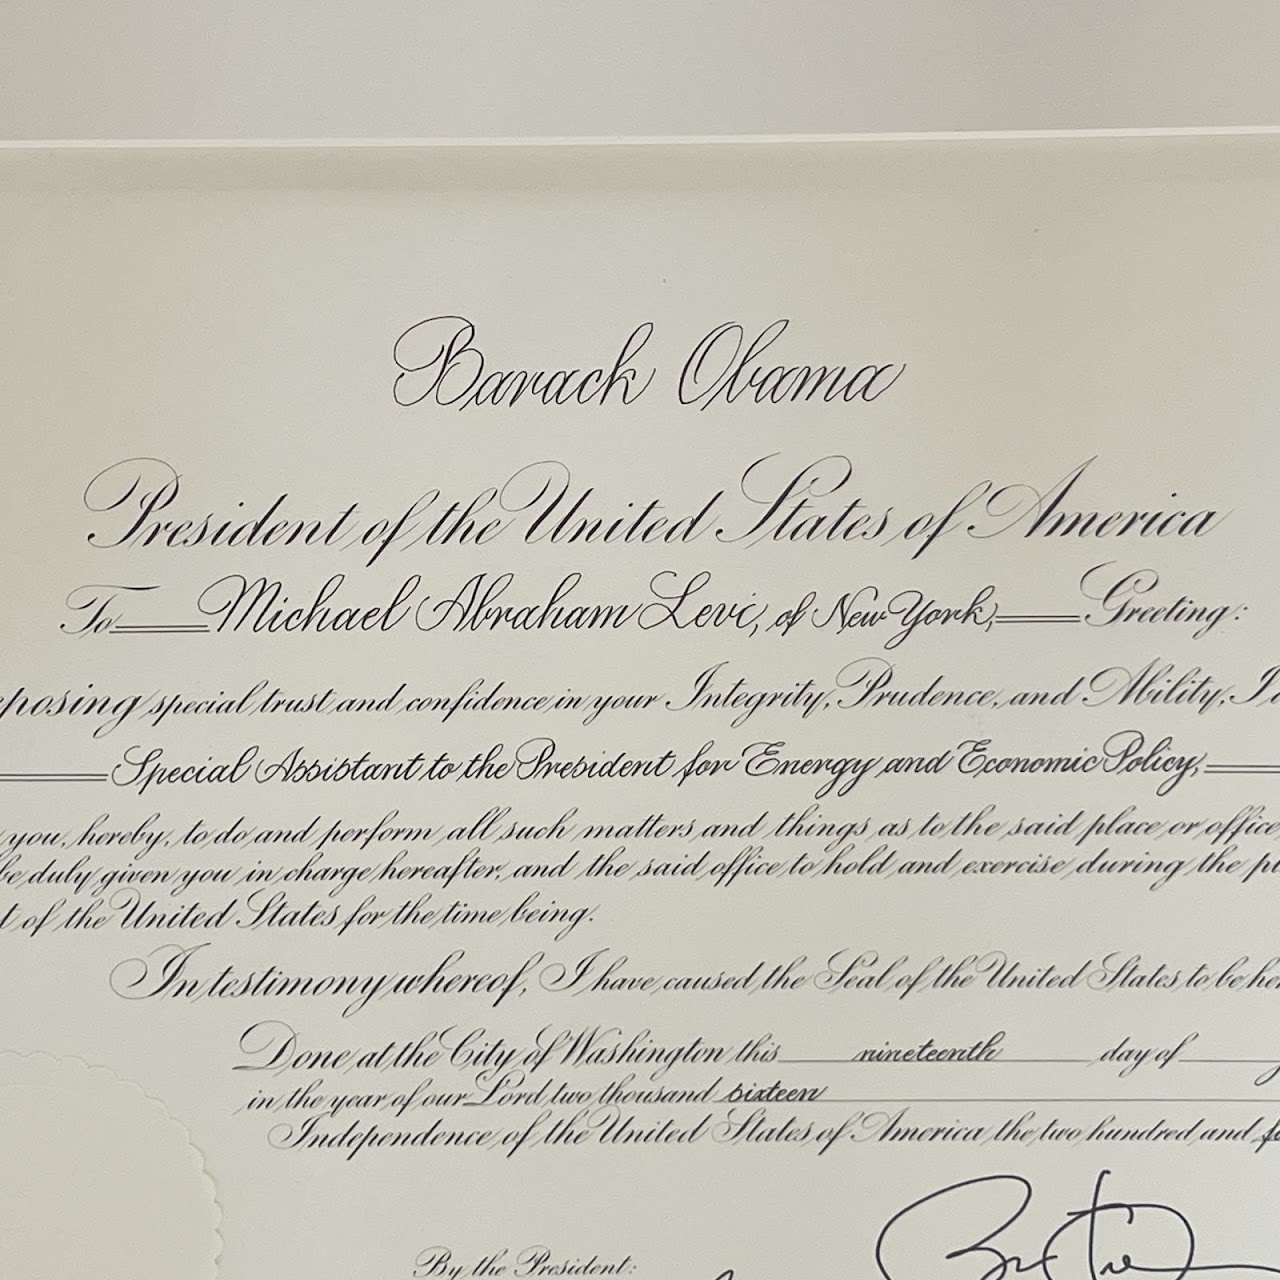 Barack Obama
President of the United States of America
To Michael Abraham Levi, of New York, Greeting:
eposing special trust and confidence in your Integrity, Prudence, and Ability, I
Special Assistant to the President for Energy and Economic Policy,
you, hereby, to do and perform all such matters and things as to the said place or office
be duly given you in charge hereafter, and the said office to hold and exercise during the
t of the United States for the time being.
In testimony whereof, I have caused the Seal of the United States to be
Done at the City of Washington this nineteenth day of
in the year of our Lord two thousand sixteen
Independence of the United States of America the two hundred and
By the President: